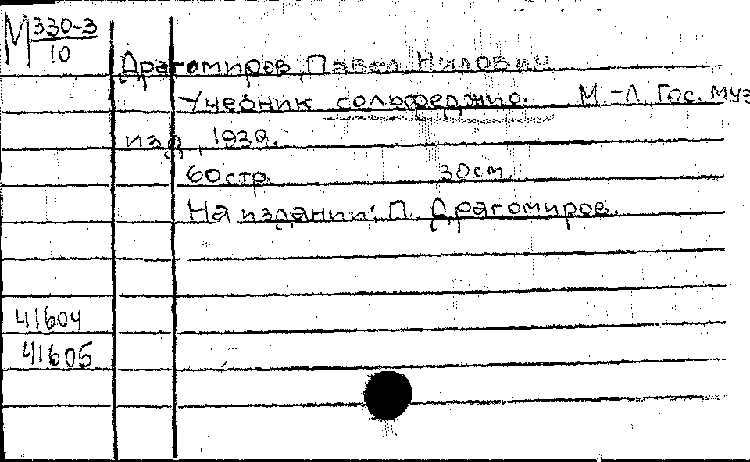 М 330-3
10
Драгомиров, Павел Нилович
Учебник сольфеджио. М.-Л. Гос. муз
изд., 1939.
60 стр. 30 см.
На издании: П. Драгомиров.
41604
41605